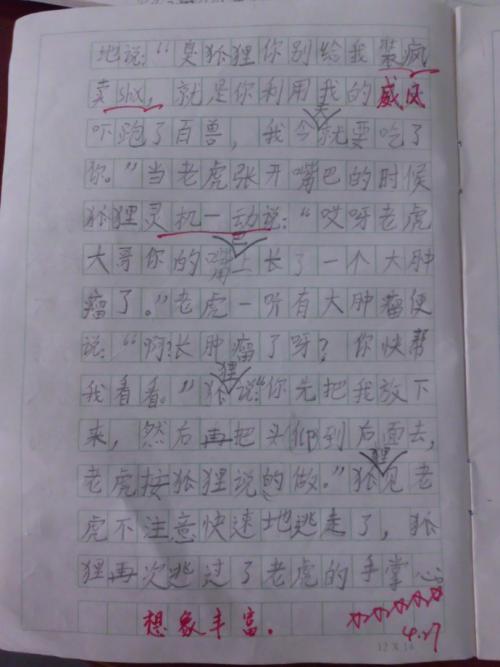 地说：“臭狐狸你别给我装疯
卖shǎ，就是你利用我的威风
吓跑了百兽，我今天就要吃了
你。”当老虎张开嘴巴的时候
狐狸灵机一动说：“哎呀老虎
大哥你的嘴巴上长了一个大肿
瘤了。”老虎一听有大肿瘤便
说：“啊？长肿瘤了呀？你快帮
我看看。”狐狸说：“你先把我放下
来，然后再把头仰到后面去，
老虎按狐狸说的做。”狐狸见老
虎不注意快速地逃走了，狐
狸再次逃过了老虎的手掌心
想象丰富。
4.27